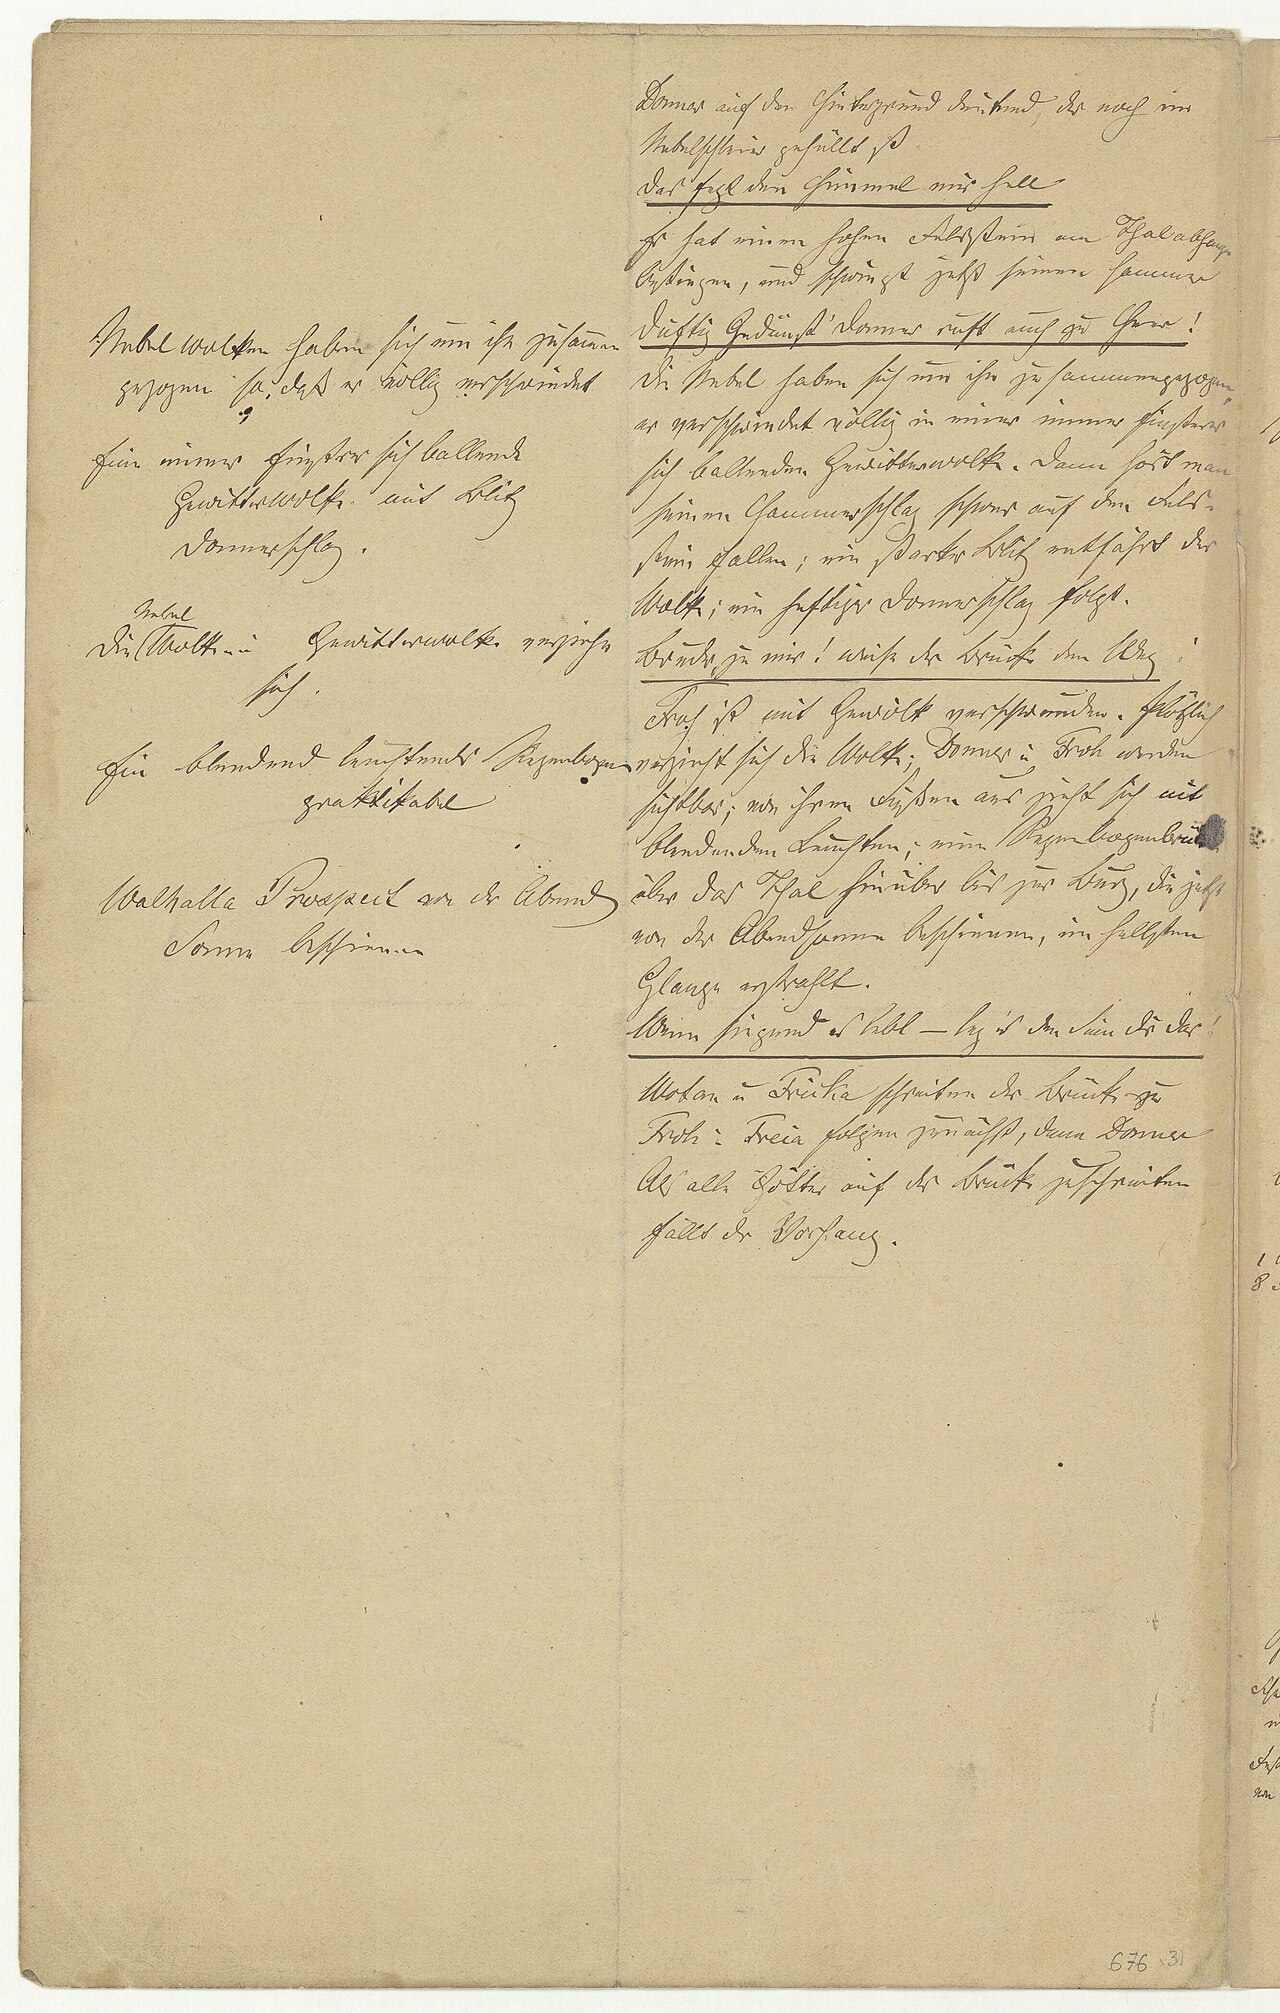 Nebelwolken haben sich um ihn zusammen
gezogen so, daß er völlig verschwindet
Eine immer finstrer sich ballende
Gewitterwolke mit Blitz
Donnerschlag.
Nebel
Die Wolke u Gewitterwolke verziehn
sich.
Ein blendend leuchtender Regenbogen
praktikabel
Walhalla Prospect von der Abend
Sonne beschienen
Donner auf den Hintergrund deutend, der noch in
Nebelschleier gehüllt ist
Das fegt den Himmel mir hell
Er hat einen hohen Felsstein am Thalabhange
bestiegen, und schwingt jetzt seinen Hammer
Duftig Gedünst' Donner ruft euch zu Heer!
Die Nebel haben sich um ihn zusammengezogen,
er verschwindet völlig in einer immer finsterer
sich ballenden Gewitterwolke. Dann hört man
seinen Hammerschlag schwer auf den Fels-
stein fallen; ein starker Blitz entfährt der
Wolke; ein heftiger Donnerschlag folgt.
Bruder, zu mir! weise der Brücke den Weg!
Froh ist mit Gewölk verschwunden. Plötzlich
verzieht sich die Wolke; Donner u Froh werden
sichtbar; von ihren Füßen aus zieht sich mit
blendendem Leuchten, eine Regenbogenbrücke
über das Thal hinüber bis zur Burg, die jetzt
von der Abendsonne beschienen, im hellsten
Glanze erstrahlt.
Wenn siegend es lebt — leg' es den Sinn dir dar!
Wotan u Fricka schreiten der Brücke zu
Froh u Freia folgen zunächst, dann Donner
Als alle Götter auf der Brücke zuschreiten
fällt der Vorhang.
676 (3)